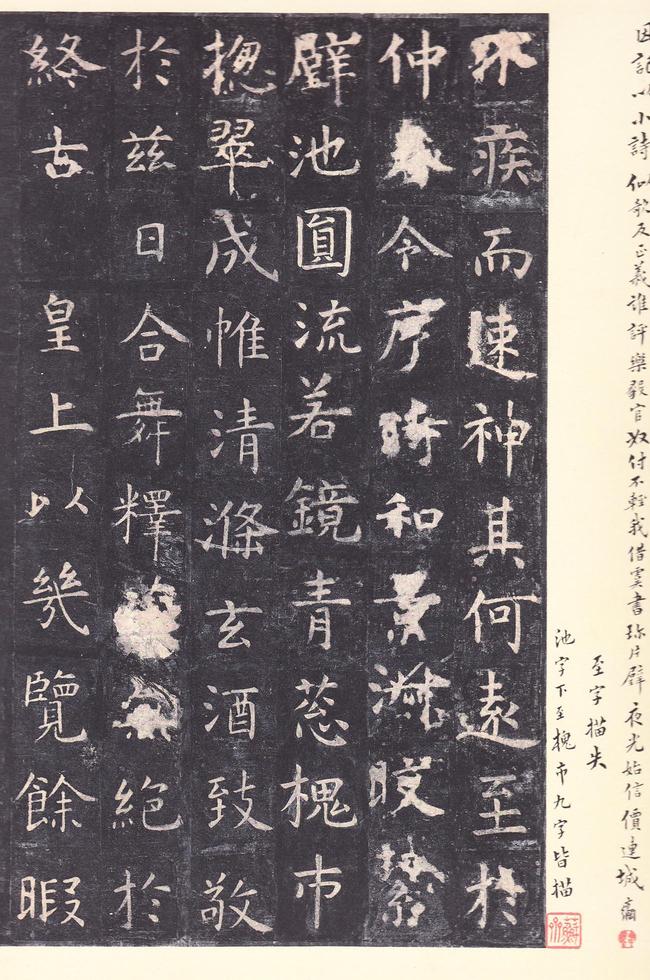 因記以小詩 誰評樂毅官奴付不輕我借虞書珎片璧夜光始信價連城
至字描失
池字下至槐市九字皆描
不疾而速神其何遠至於
仲春令序時和景淑
璧池圓流若鏡青蔥槐市
揔翠成帷清滌玄酒致敬
於茲日合舞釋絕於
終古 皇上以幾覽餘暇